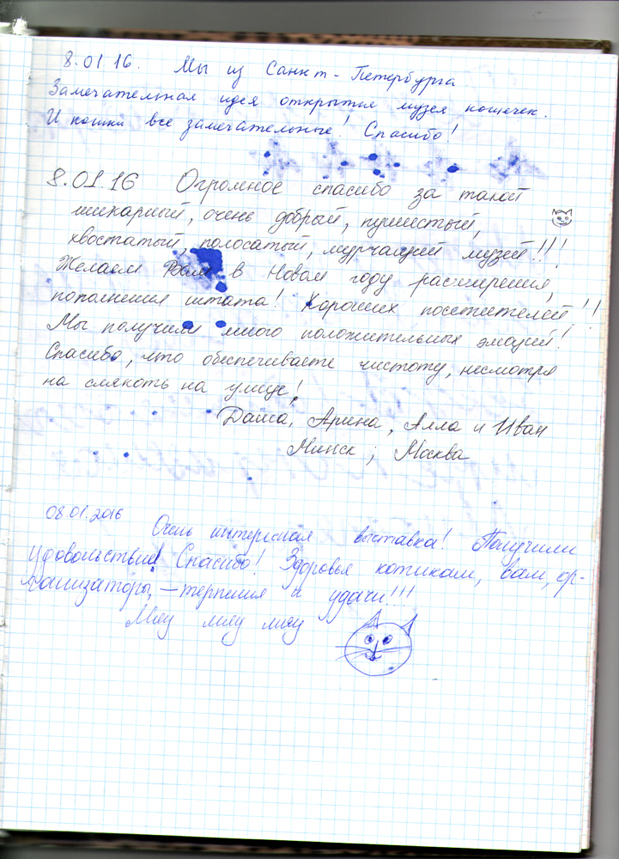 8.01.16. Мы из Санкт-Петербурга
Замечательная идея открытия музея кошечек.
И кошки все замечательные! Спасибо!
8.01.16 Огромное спасибо за такой
шикарный, очень добрый, пушистый,
хвостатый, полосатый, мурчащий музей!!!
Желаем в Новом году расширения,
пополнения штата! Хороших посетителей!!
Мы получили много положительных эмоций!
Спасибо, что обеспечиваете чистоту, несмотря
на слякоть на улице!
Даша, Арина, Алла и Иван
Минск, Москва
08.01.2016
Очень интересная выставка! Получили
удовольствие! Спасибо! Здоровья котикам, вам, ор-
ганизаторы, – терпения и удачи!!!
Мяу мяу мяу